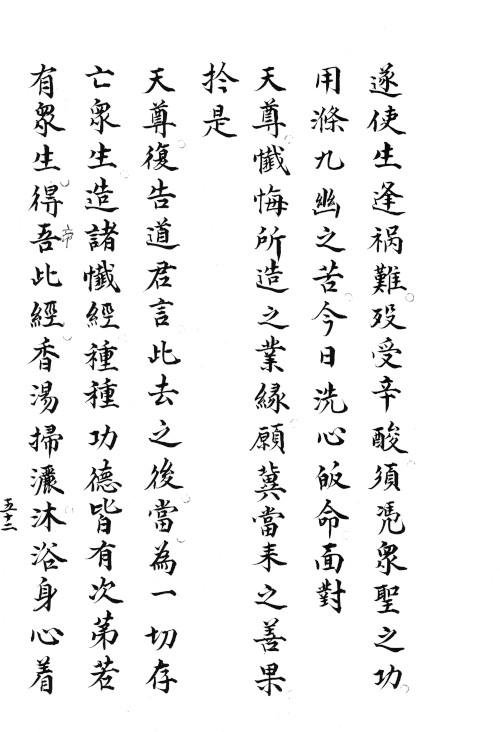 遂使生逢禍難。歿受辛酸須凴衆聖之功。
用滌九幽之苦。今日洗心皈命面對
天尊。懺悔所造之業緣。願冀當来之善果。
扵是
天尊復。告道君言此去之後。當。為一切存
亡衆生。造諸懺經種種功德皆有次苐若
有衆生。得吾此經。香湯掃灑沐浴身心着
五十二